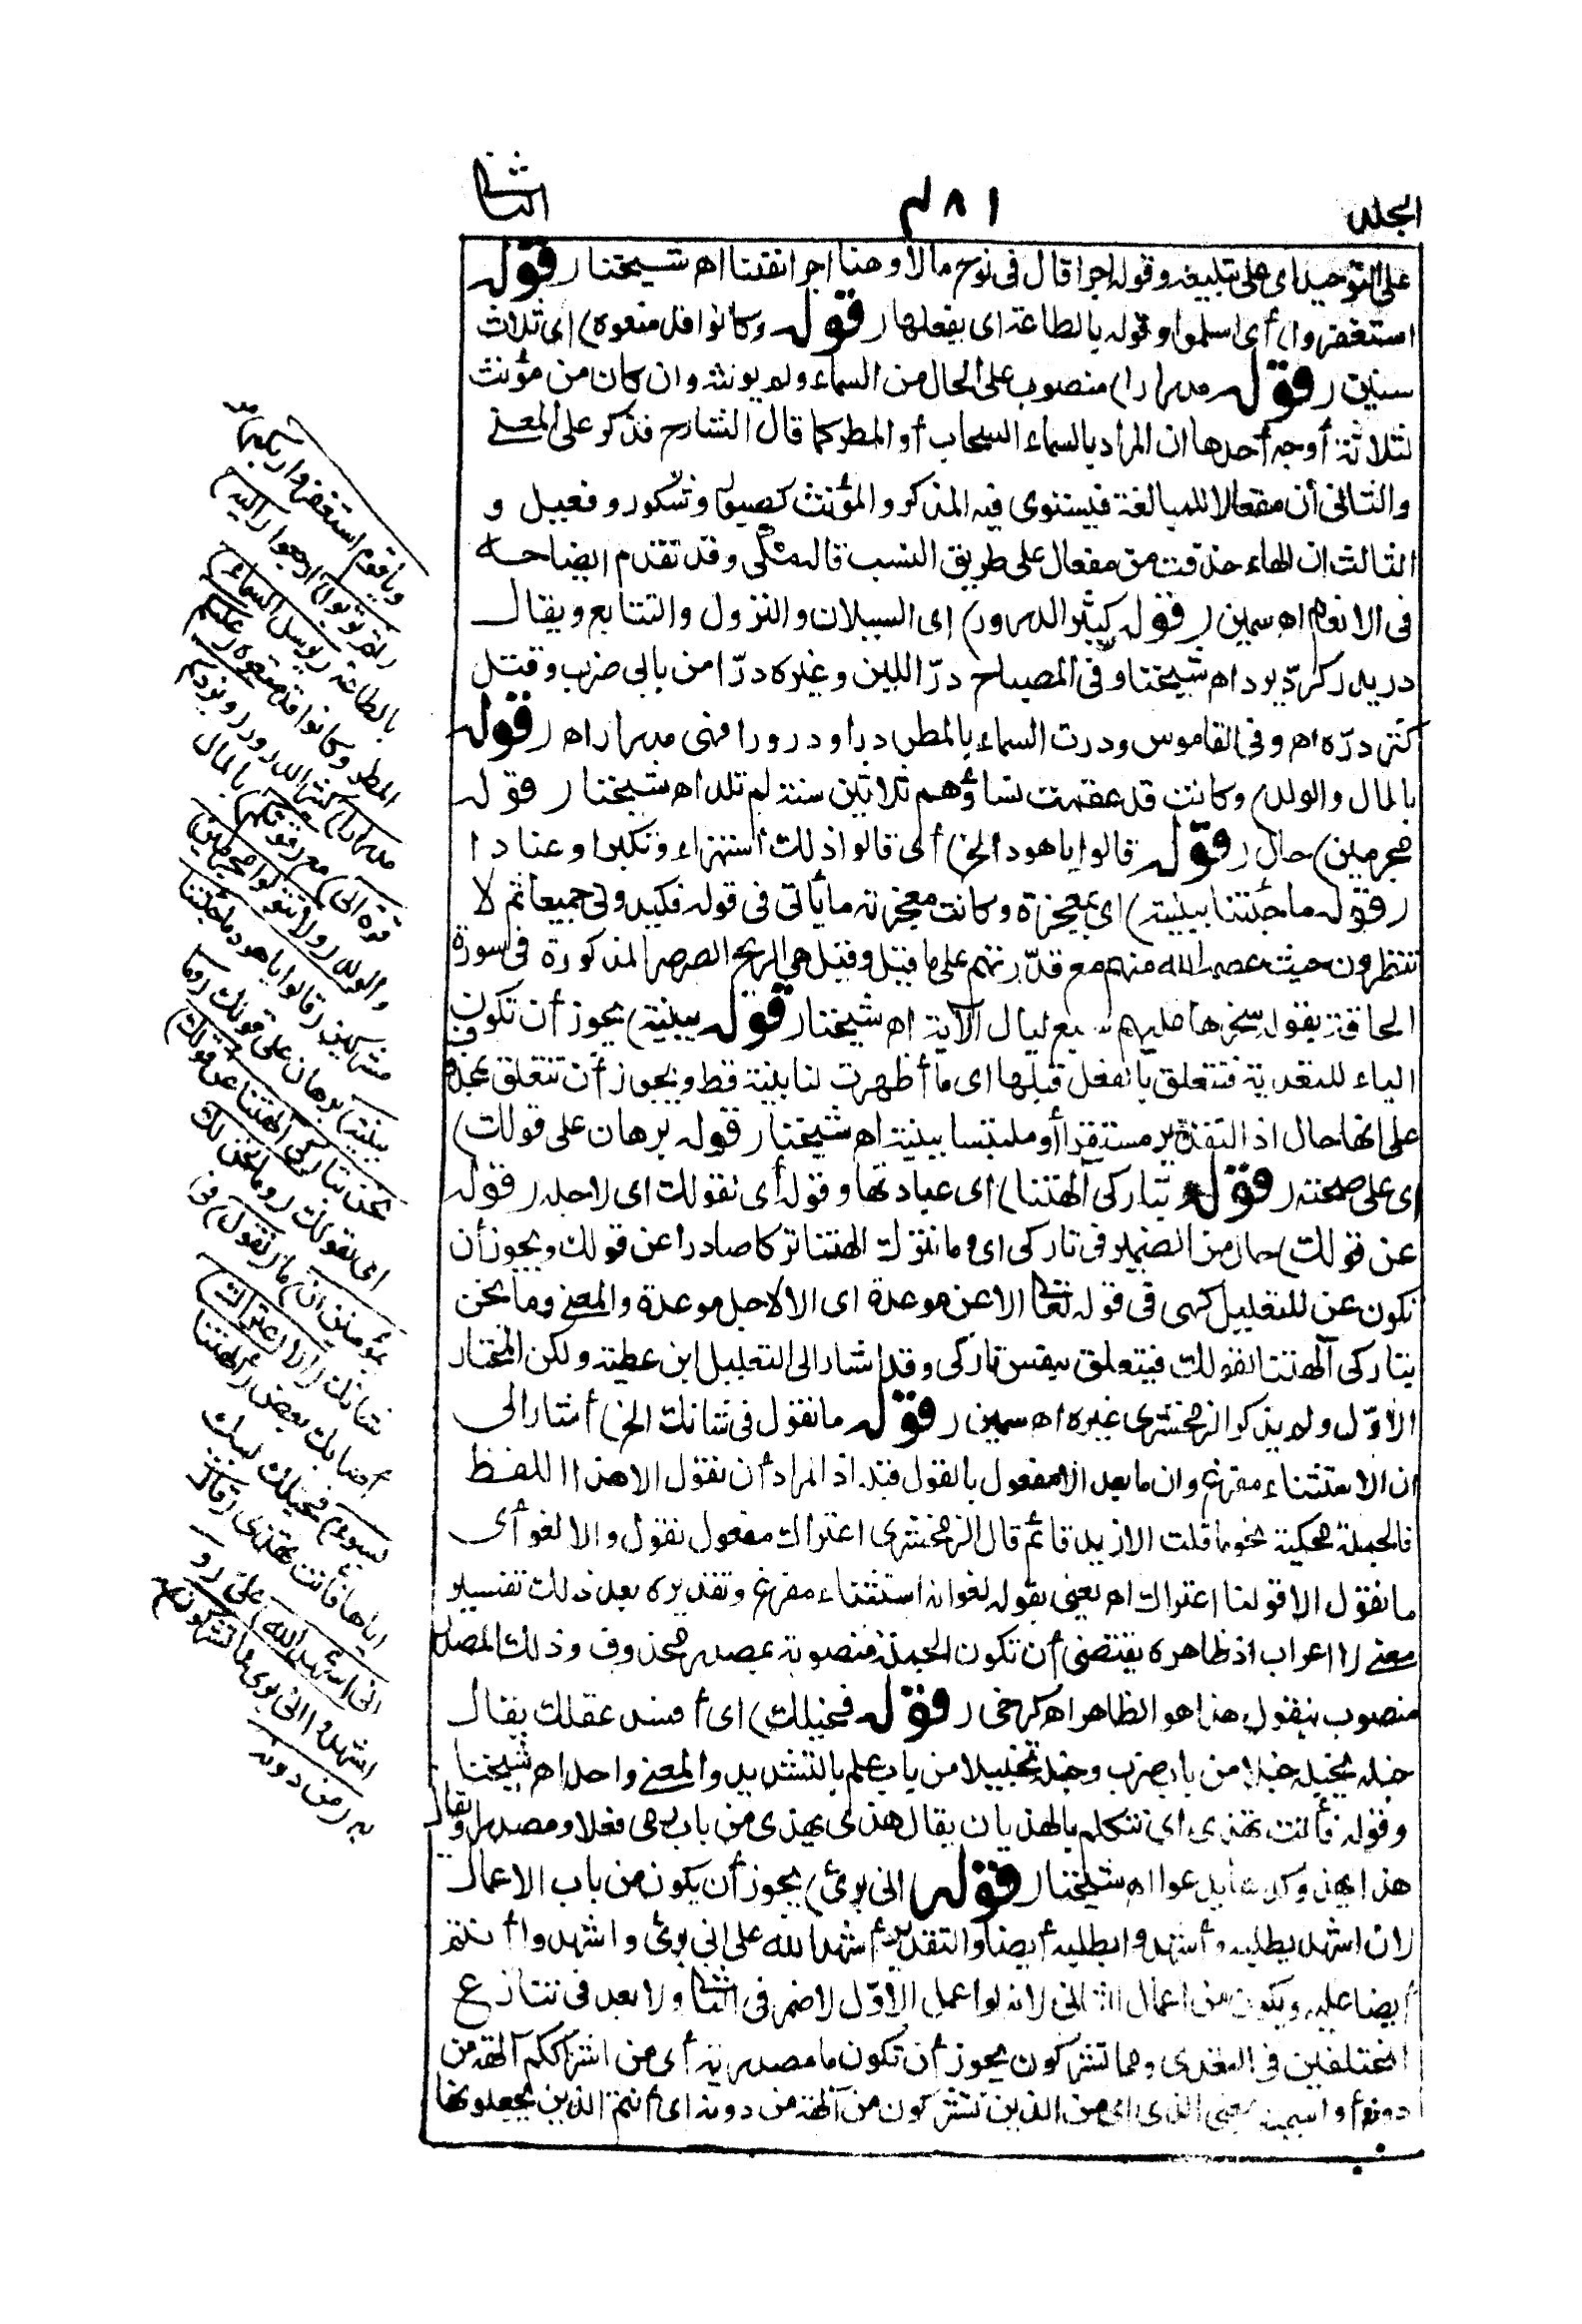 المجلد
٤٨١
الثانی
على التوحيد اى على تبليغه وقوله اجرا قال فى نوح مالا وهنا اجرا تفننا اه شيخنا (قوله
استغفروا) أى اسلموا وقوله بالطاعة اى بفعلها (قوله وكانوا قد منعوه) اى ثلاث
سنين (قوله مدرارا) منصوب على الحال من السماء ولم يونثه وان كان من مؤنث
لثلاثة أوجه أحدها ان المراد بالسماء السحاب أو المطر كما قال الشارح فذكر على المعنى
والثانى أن مفعالا للمبالغة فيستوى فيه المذكر والمؤنث كصبور وشكور وفعيل و
الثالث ان الهاء حذفت من مفعال على طريق النسب قاله مكى وقد تقدم ايضاحه
فى الانعام اه سمين (قوله كثير الدرور) اى السيلان والنزول والتتابع ويقال
در يدر كرد يرد اه شيخنا وفى المصباح درّ اللبن وغيره درّا من بابى ضرب وقتل
كثر درّه اه وفى القاموس ودرت السماء بالمطر درا ودرورا فهى مدرار اه (قوله
بالمال والولد) وكانت قد عقمت نساؤهم ثلاثين سنة لم تلد اه شيخنا (قوله
مجرمين) حال (قوله قالوا ياهود الخ) أى قالوا ذلك استهزاء وتكبرا وعنادا
(قوله ما جئتنا ببينة) اى بمعجزة وكانت معجزته ما يأتى فى قوله فكيدونى جميعا ثم لا
تنظرون حيث عصمه الله منهم مع قدرتهم على ما قيل وقيل هى الريح الصرصر المذكورة فى سورة
الحاقة بقوله سخرها عليهم سبع ليال الآية اه شيخنا (قوله ببينة) يجوز أن تكون
الباء للتعدية فتتعلق بالفعل قبلها اى ما أظهرت لنا بينة قط ويجوز أن تتعلق بمحذوف
على انها حال اذ التقدير مستقرا أو ملتبسا ببينة اه شيخنا (قوله برهان على قولك)
اى على صحته (قوله بتاركى آلهتنا) اى عبادتها وقوله أى لقولك اى لاجله (قوله
عن قولك) حال من الضمير فى تاركى اى وما نترك الهتنا تركا صادرا عن قولك ويجوز أن
تكون عن للتعليل كهى فى قوله تعالى الا عن موعدة اى الا لاجل موعدة والمعنى وما نحن
بتاركى آلهتنا لقولك فيتعلق بنفس تاركى وقد اشار الى التعليل ابن عطية ولكن المختار
الاوّل ولم يذكر الزمخشرى غيره اه سمين (قوله ما نقول فى شانك الخ) أشار الى
ان الاستثناء مفرغ وان ما بعد الا مفعول بالقول قبله اذ المراد أن نقول الا هذا اللفظ
فالجملة محكية نحو ما قلت الا زيد قائم قال الزمخشرى اعتراك مفعول نقول والا لغو أى
ما نقول الا قولنا اعتراك اه يعنى بقوله لغو انه استثناء مفرغ وتقديره بعد ذلك تفسير
معنى لا اعراب اذ ظاهره يقتضى أن تكون الجملة منصوبة بمصدر محذوف وذلك المصدر
منصوب بنقول هذا هو الظاهر اه كرخى (قوله فخبلك) اى أفسد عقلك يقال
خبله يخبله خبلا من باب ضرب وخبله تخبيلا من باب علم بالتشديد والمعنى واحد اه شيخنا
وقوله فأنت تهذى اى تتكلم بالهذيان يقال هذى يهذى من باب رمى فعلا ومصدرا ويقال
هذا يهذو كدعا يدعو اه شيخنا (قوله انى برئ) يجوز أن يكون من باب الاعمال
لان اشهد يطلبه وأشهدوا يطلبه أيضا والتقدير أشهد الله على انى برئ واشهدوا أنتم
أيضا عليه ويكون من اعمال الثانى لانه لو اعمل الاوّل لاضمر فى الثانى ولا بعد فى تنازع
المختلفين فى التعدى ومما تشركون يجوز أن تكون ما مصدرية أى من اشراككم آلهة من
دونه أو اسمية بمعنى الذى اى من الذين تشركون من آلهة من دونه اى أنتم الذين يجعلونها
ويا قوم استغفروا ربكم من
(ثم توبوا) ارجعوا (اليه)
بالطاعة (يرسل السماء)
المطر وكانوا قد منعوه (عليكم
مدرارا) كثير الدرور (ويزدكم
قوة الى) مع (قوتكم) بالمال
والولد (ولا تتولوا مجرمين)
مشركين (قالوا ياهود ما جئتنا
ببينة) برهان على قولك (وما
نحن بتاركى آلهتنا عن قولك)
اى لقولك (وما نحن لك
بمؤمنين ان) ما (نقول) فى
شانك (الا اعتراك)
أصابك (بعض آلهتنا
بسوء) فخبلك لسبك
اياها فأنت تهذى (قال
انى اشهد الله) على (و
اشهدوا انى برئ مما تشركون
به (من دونه